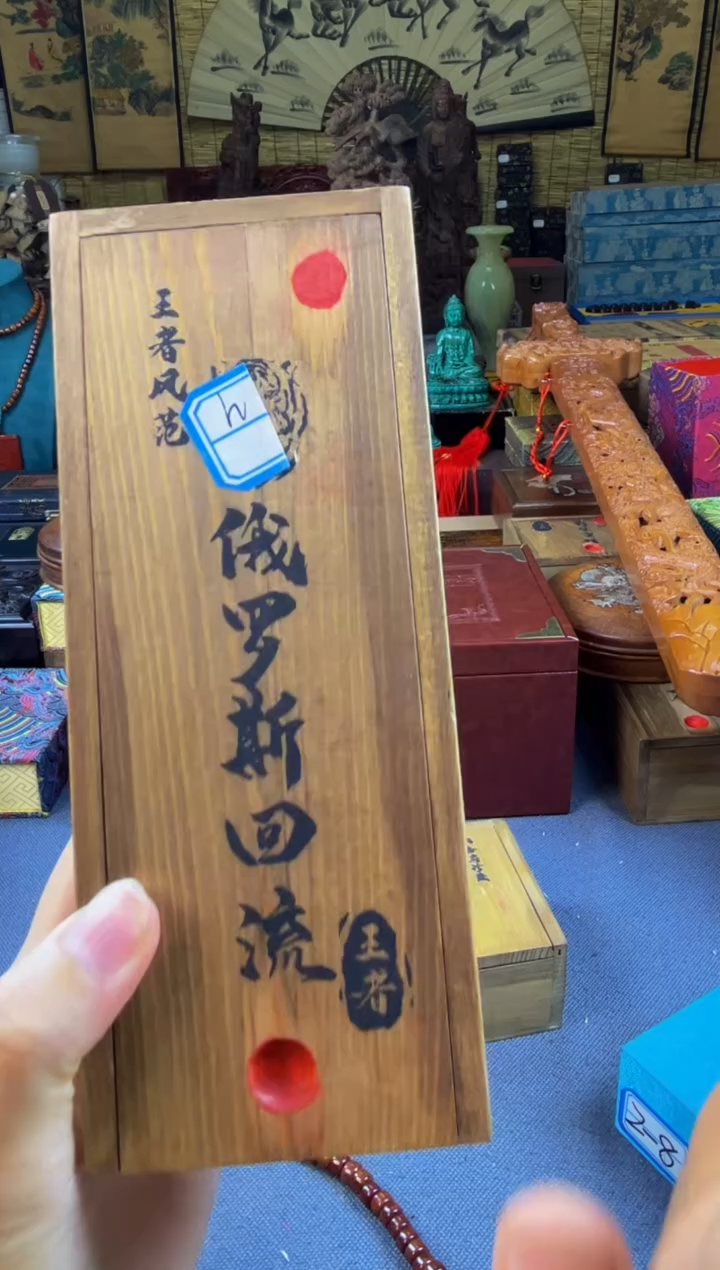 王者风范
h
俄罗斯回流
王者
2-8